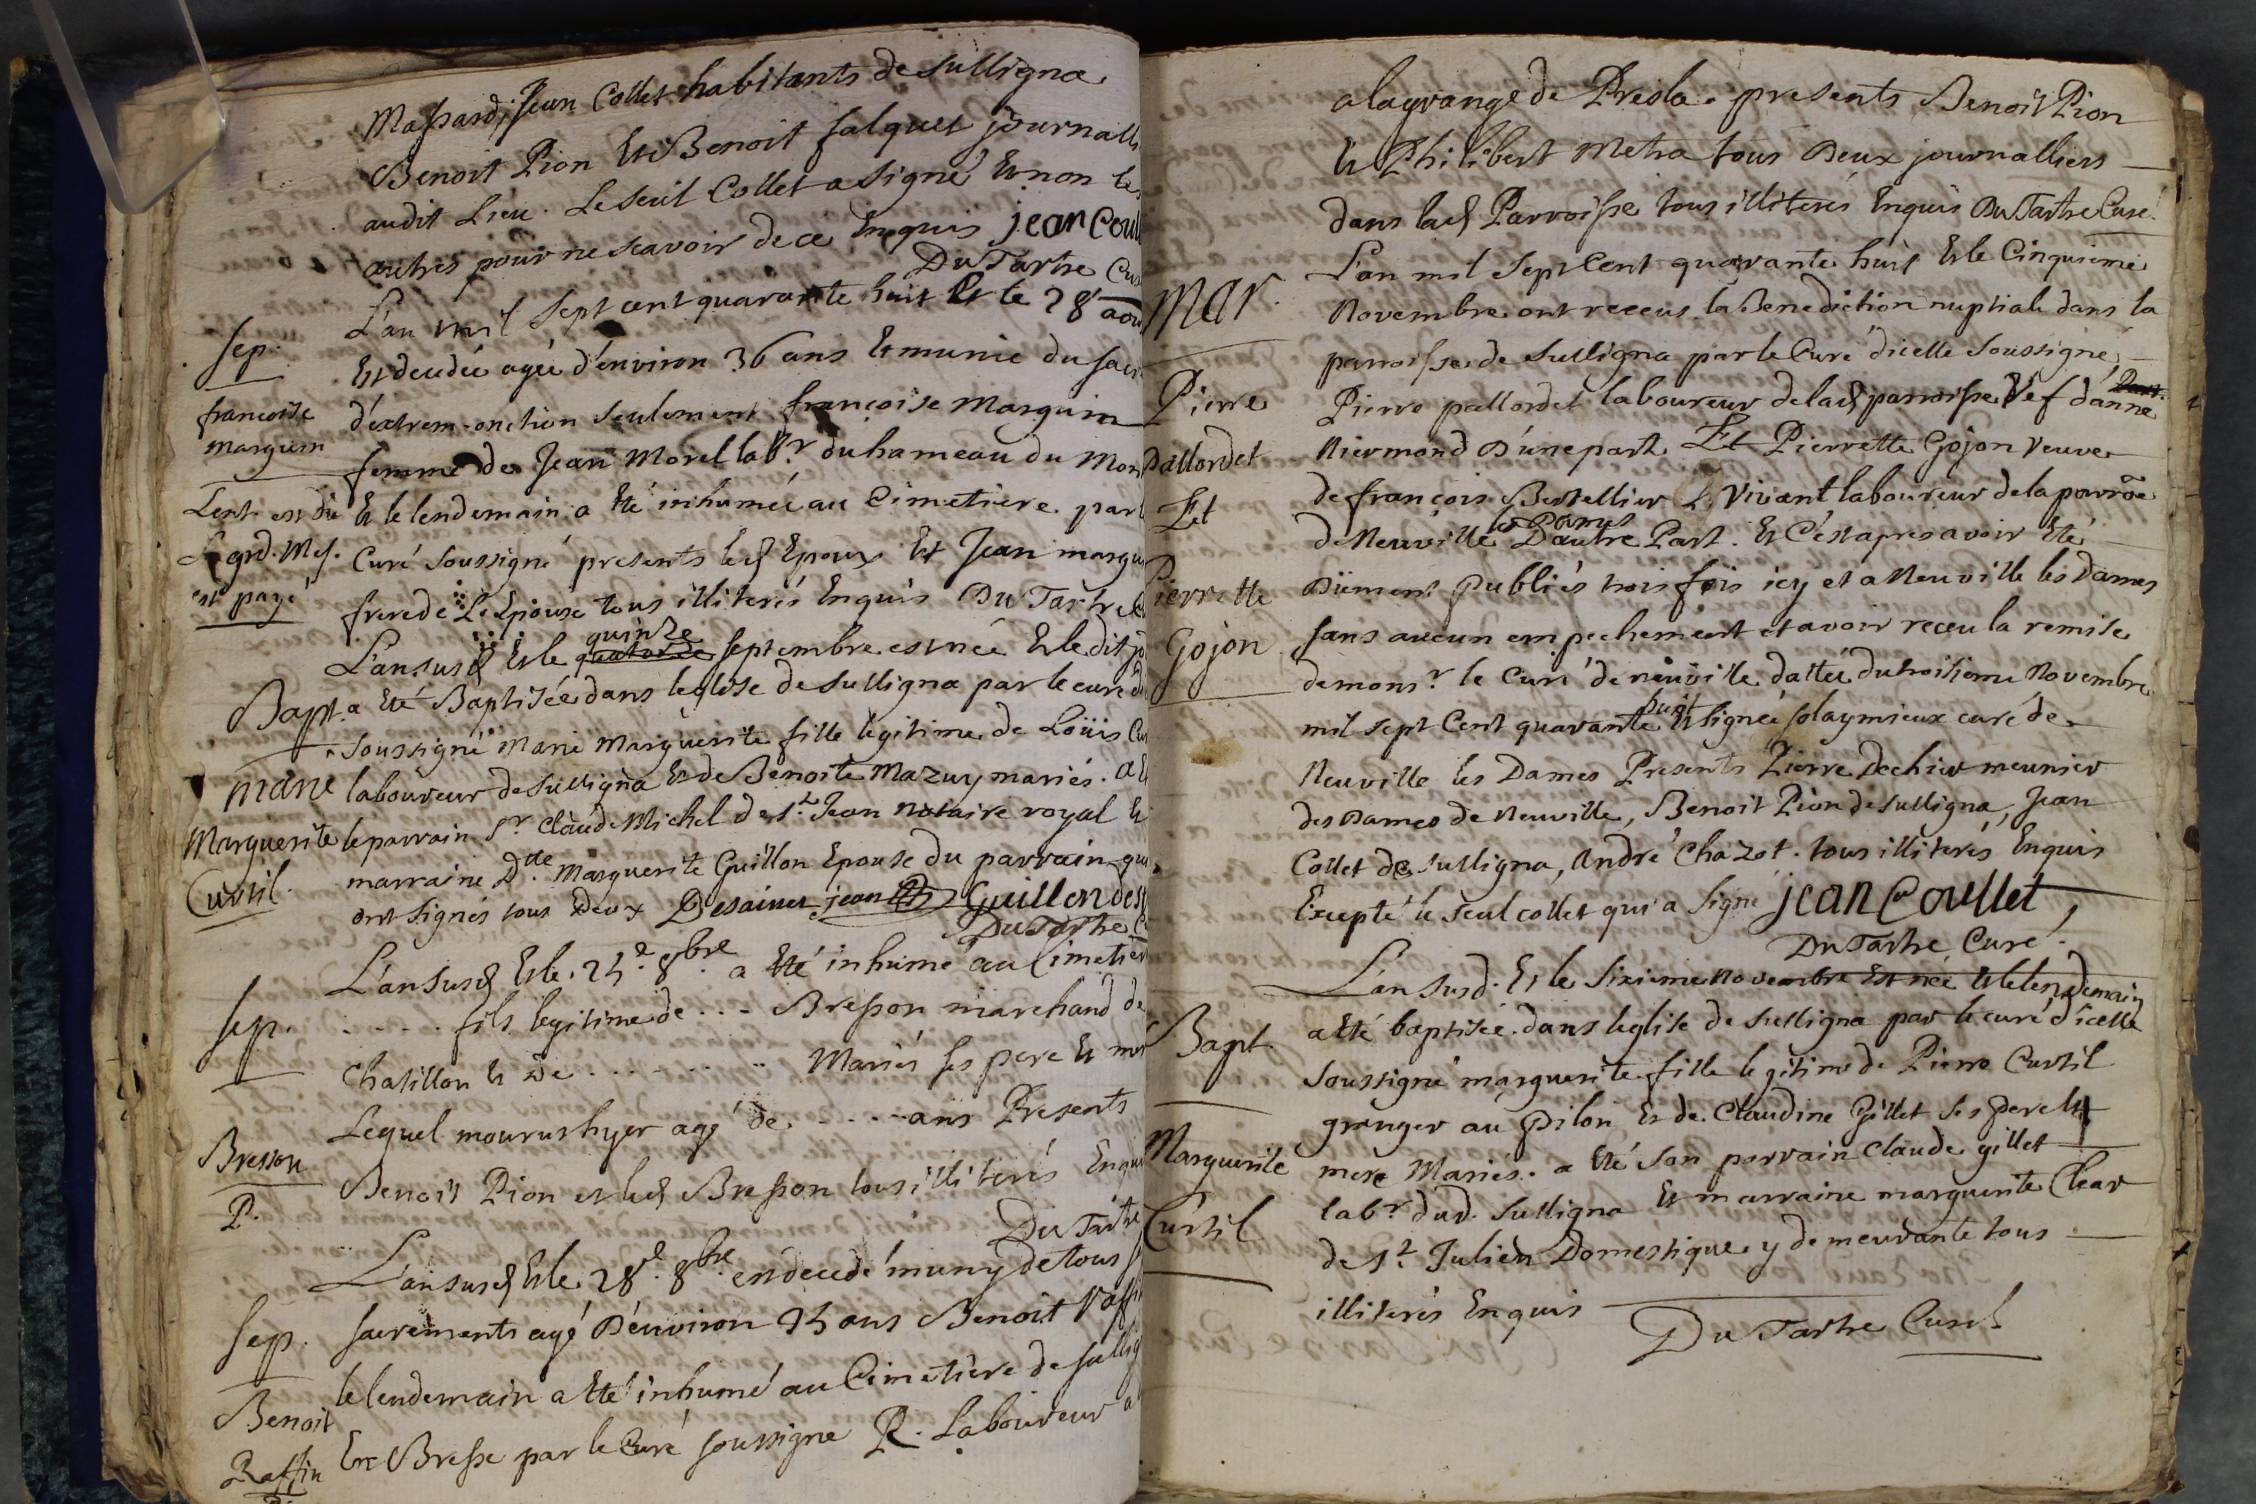 Massard, Jean Collet habitants de Sulligna
Benoit Pion Et Benoit falquet journall
audit Lieu. Le seul Collet a signé Et non les
autres pour ne scavoir de ce Enquis jean Coul
DuTartre Cu
L'an mil sept cent quarante huit Et le 28 aou
sep. Est decedée agée d'environ 36 ans Et munie du sacr
francoise d'extrem-onction seulement françoise Marguin
Marguin femme de Jean Morel lab.r du hameau du Mon
Lent. est dû Et le lendemain a Eté inhumée au Cimetiere par l
grd. Mes. Curé soussigné presents led Epoux Et Jean margu
est payé frere de L'Epouse tous illiterés Enquis DuTartre
L'an susd Et le quatorze quinze septembre est née Et le dit jo
Bapt. a Eté Baptisée dans leglise de Sulligna par le curé
soussigné Marie Marguerite fille legitime de Loüis Cu
Marie laboureur de Sulligna Et de Benoite Mazuy mariés. a E
Marguerite le parrain Sr. Claude Michel de St. Jean notaire royal Et
Curtil. marraine Dlle. Marguerite Guillon Epouse du parrain qui
ont signés tous Deux Desaint jean Guillon des
DuTartre C
L'an susd Et le 25e. 8bre. a Eté inhumé au Cimetier
sep. . . . . . fils legitime de . . . Bresson marchand de
Chatillon Et de . . . . . . . . Mariés ses pere Et mer
Lequel mourut hyer agé de . . . . ans Presents
Bresson Benoit Pion et led Bresson tous illiterés Enqui
P. DuTartre
L'an susd Et le 28e. 8bre. est decedé muny de tous
sep. sacrements agé D'environ 25 ans Benoit Raffi
Benoit le lendemain a Eté inhumé au Cimetière de Sullig
Raffin En Bresse par le Curé soussigné R. Laboureur a
a la grange de Presla. presents Benoit Pion
Et Philibert Metra tous Deux journalliers
dans lad Parroisse tous illiterés Enquis DuTartre Curé.
L'an mil Sept Cent quarante huit Et le Cinquieme
Mar. Novembre ont receus la Benediction nuptiale dans la
parroisse de Sulligna par le Curé d'icelle Soussigné,
Pierre Pierre pallordet laboureur de lad parroisse Vef d'anne
Pallordet Niermond D'une part. Et Pierrette Gojon Veuve
de françois Bertellier Vivant laboureur de la parroe
Et de Neuville les Dames D'autre Part. Et C'est apres avoir Eté
Pierrette Düement Publiés trois fois icy et a Neuville les Dames
Gojon sans aucun empechement et avoir receu la remise
de monsr. le Curé de neuville dattée du troisieme Novembre
mil sept Cent quarante huit Et signée solaymieux curé de
Neuville les Dames Presents Pierre Dechier meunier
des Dames de Neuville, Benoit Pion de Sulligna, Jean
Collet de Sulligna, André Chazot. tous illiterés Enquis
Excepté le seul collet qui a signé jean Coullet
DuTartre Curé.
L'an susd. Et le sixieme Novembre Est née Et le lendemain
Bapt a Eté baptisée dans leglise de Sulligna par le curé d'icelle
soussigné marguerite fille legitime de Pierre Curtil
granger au Pilon Et de Claudine Gillet ses pere Et
Marguerite mere Mariés. a Eté son parrain Claude gillet
labr. dud. Sulligna Et marraine marguerite Clear
Curtil de St. Julien Domestique y demeurante tous
illiterés Enquis
DuTartre Curé